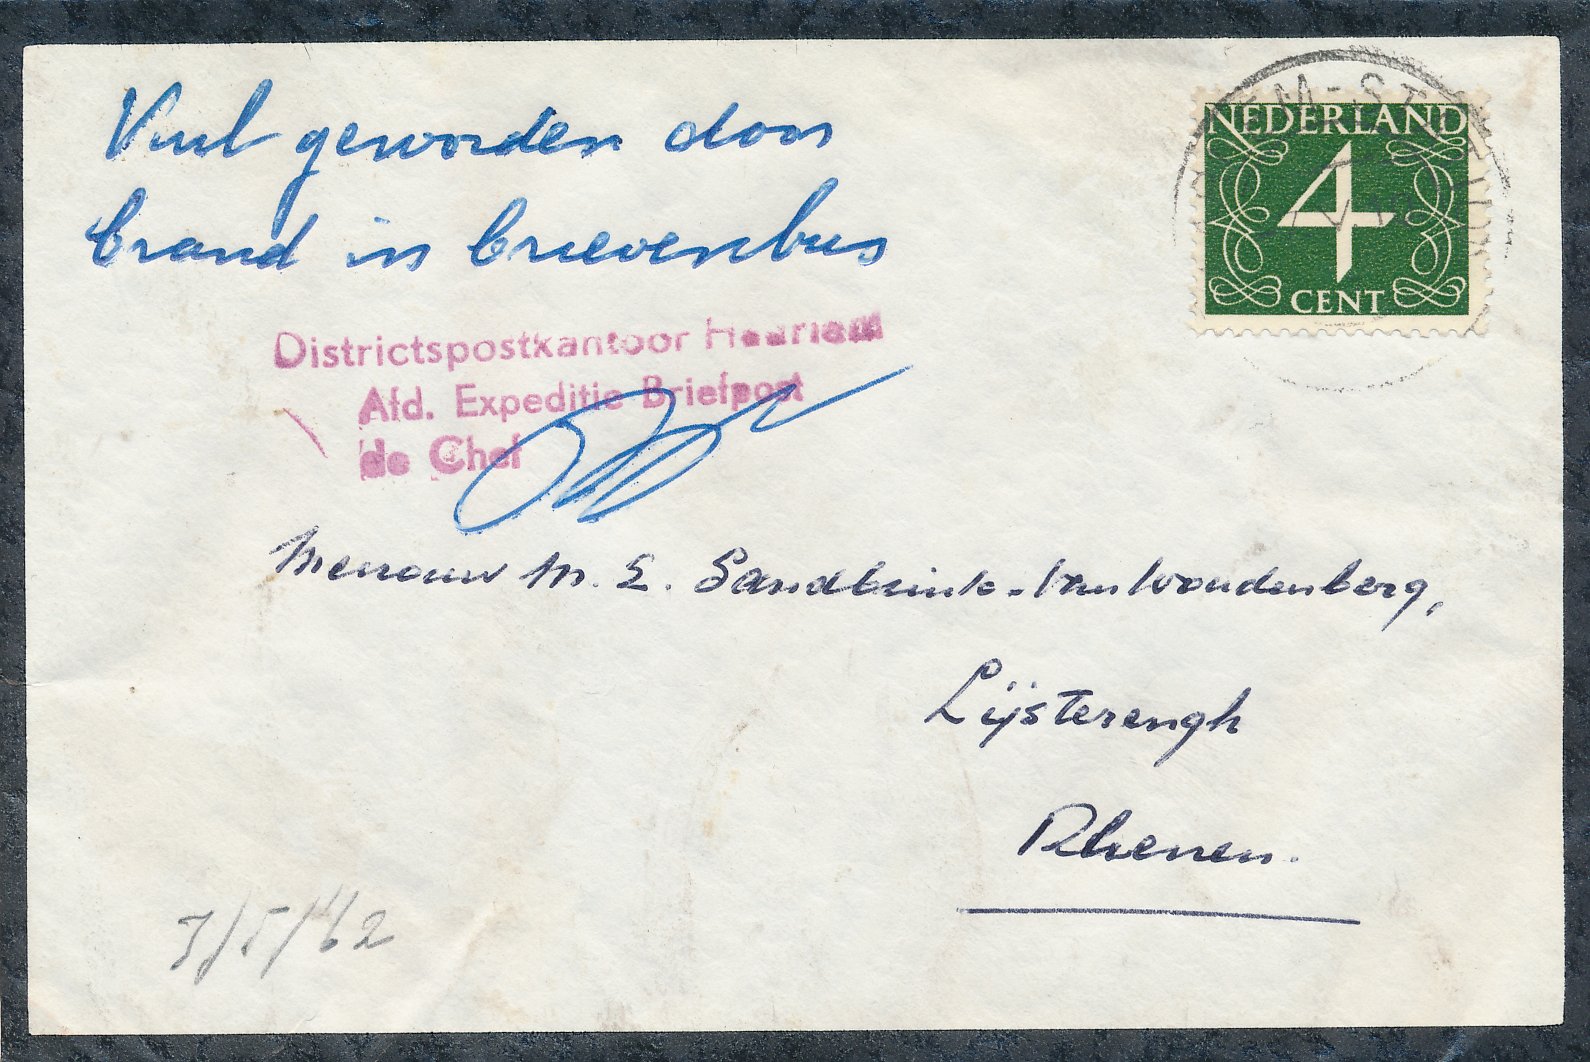 Vuil geworden door
brand in brievenbus
NEDERLAND
4
CENT
Districtspostkantoor Haarlem
Afd. Expeditie Briefpost
de Chef
Mevrouw M. E. Sandbrink-van Woudenberg,
Lijsterengh
Rhenen.
7/5/'62